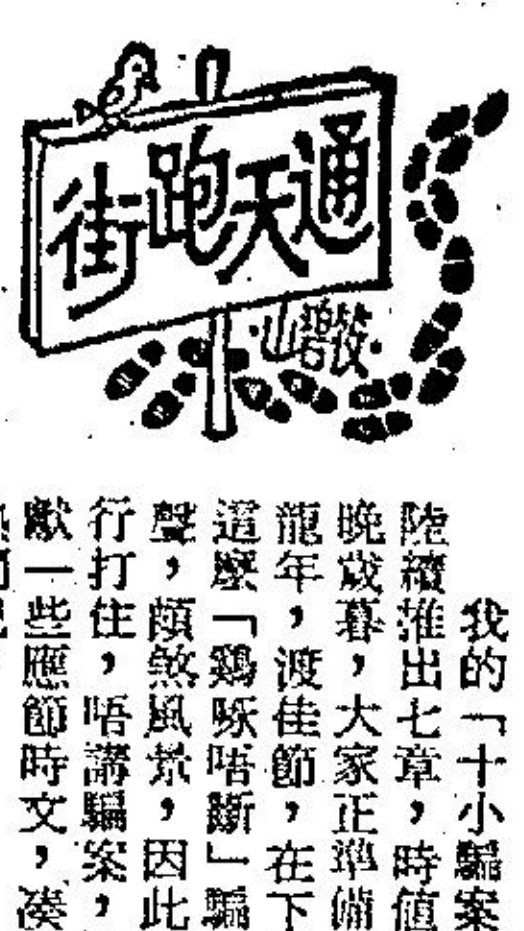 通天跑街
碧山
我的「十小騙案
陸續推出七章，時值
晚歲暮，大家正準備
龍年，渡佳節，在下
這麼「鷄啄唔斷」騙
聲，頗煞風景，因此
行打住，唔講騙案，
獻一些應節時文，湊